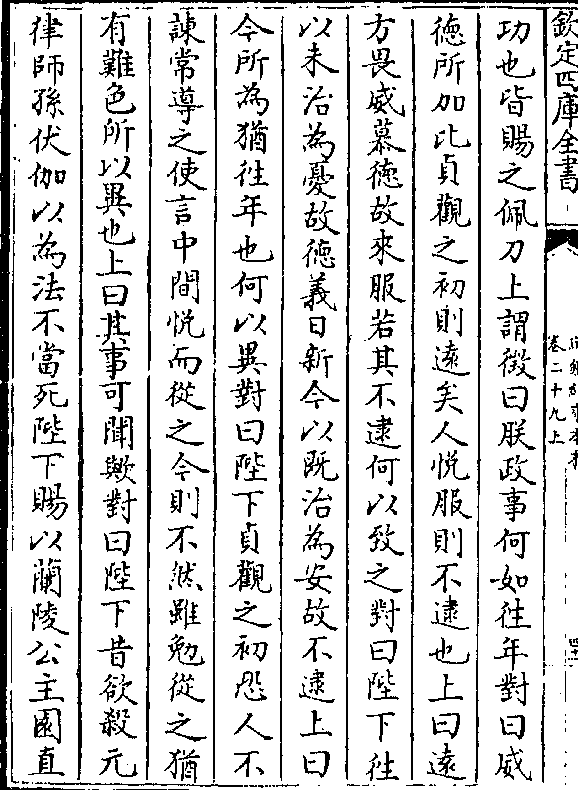 欽定四庫全書
卷二十九上
功也皆賜之佩刀上謂徵曰朕政事何如往年對曰威
徳所加比貞觀之初則逺矣人悦服則不逮也上曰逺
方畏威慕徳故來服若其不逮何以致之對曰陛下往
以未治為憂故徳義日新今以既治為安故不逮上曰
今所為猶往年也何以異對曰陛下貞觀之初恐人不
諫常導之使言中間悦而從之今則不然雖勉從之猶
有難色所以異也上曰其事可聞歟對曰陛下昔欲殺元
律師孫伏伽以為法不當死陛下賜以蘭陵公主園直